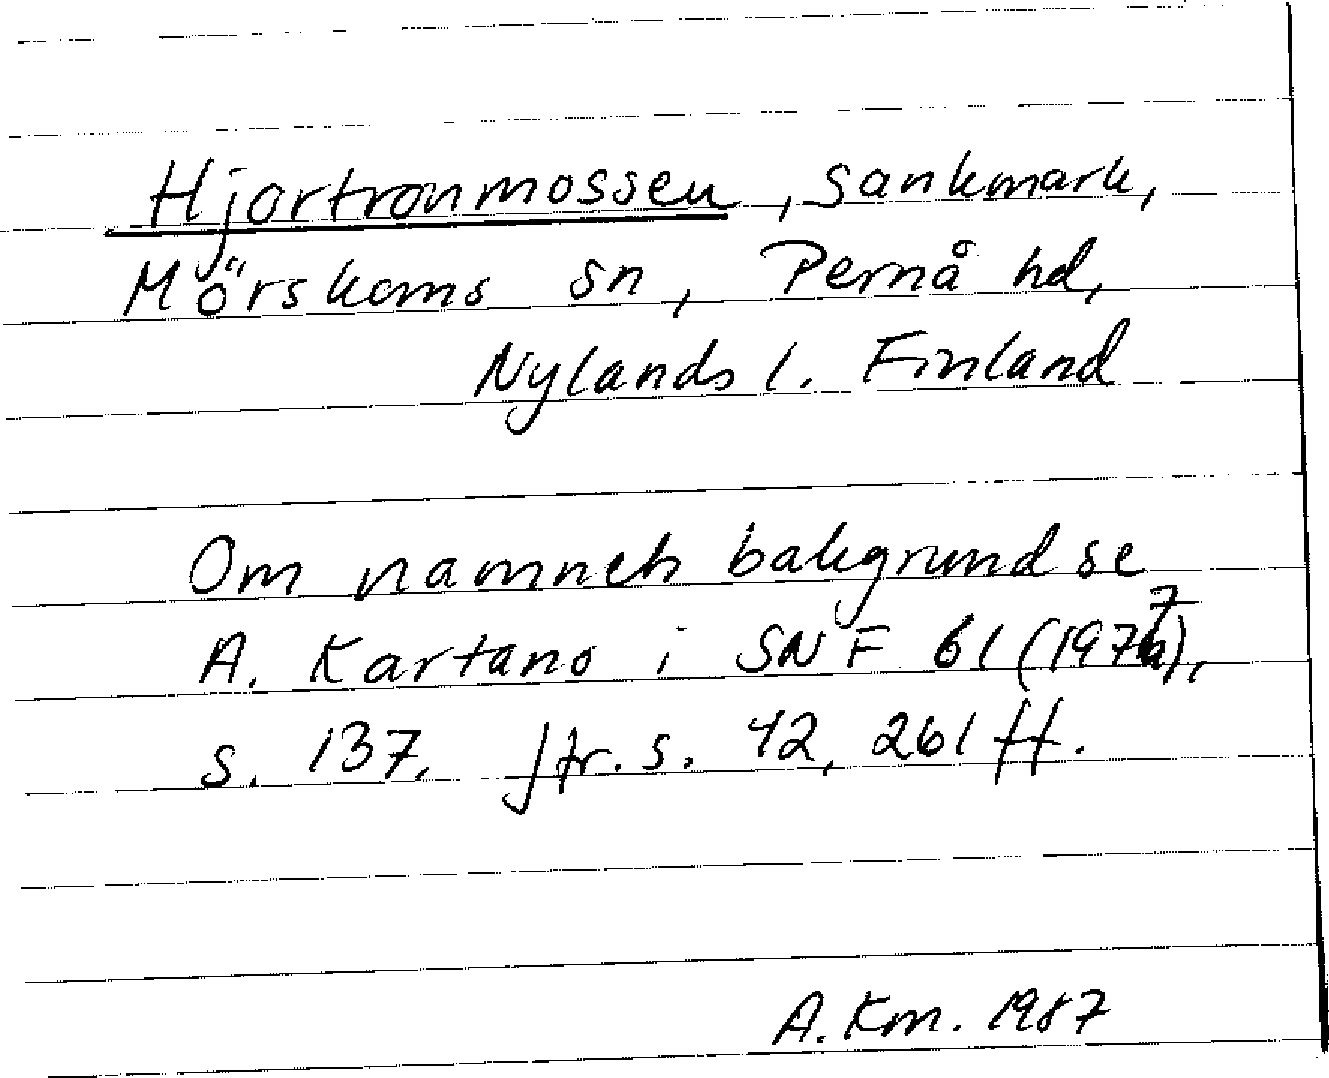 Hjortronmossen, sankmark,
Mörskoms sn, Pernå hd,
Nylands l. Finland
Om namnets bakgrund se
A. Kartano i SNF 61 (1977),
s. 137. Jfr. s. 42, 261 ff.
A. Km. 1987